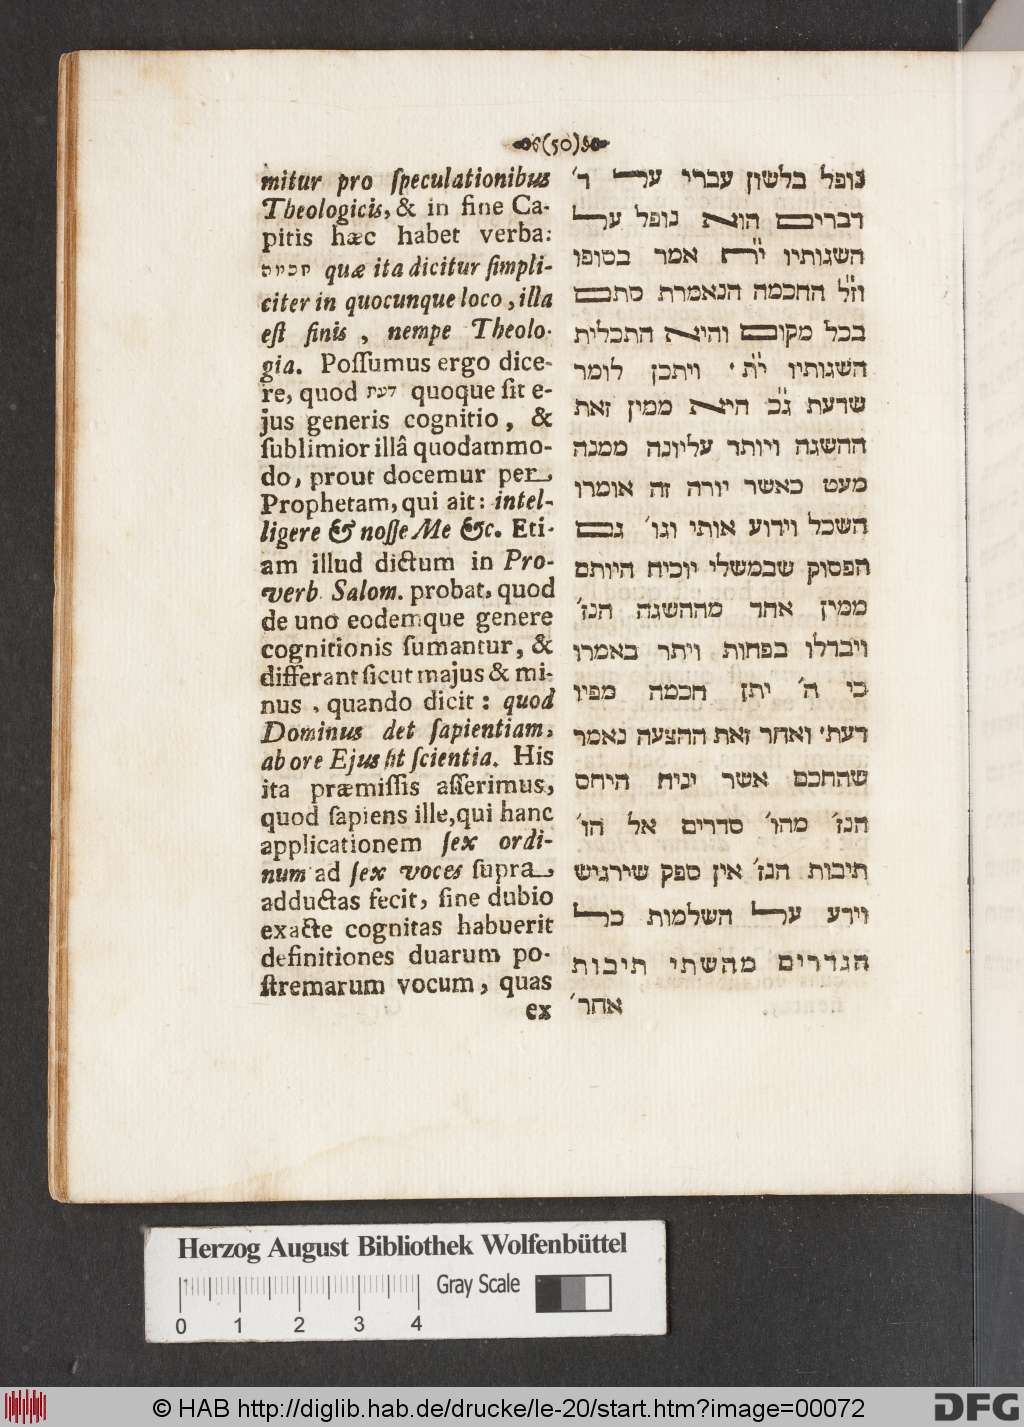 (50)
mitur pro ſpeculationibus
Theologicis, & in fine Ca-
pitis hæc habet verba:
חכמה quæ ita dicitur ſimpli-
citer in quocunque loco, illa
eſt finis, nempe Theolo-
gia. Poſſumus ergo dice-
re, quod דעת quoque ſit e-
jus generis cognitio, &
ſublimior illâ quodammo-
do, prout docemur per
Prophetam, qui ait: intel-
ligere & noſſe Me &c. Eti-
am illud dictum in Pro-
verb. Salom. probat, quod
de uno eodemque genere
cognitionis ſumantur, &
differant ſicut majus & mi-
nus, quando dicit: quod
Dominus det ſapientiam,
ab ore Ejus ſit ſcientia. His
ita præmiſſis aſſerimus,
quod ſapiens ille, qui hanc
applicationem ſex ordi-
num ad ſex voces ſupra
adductas fecit, ſine dubio
exacte cognitas habuerit
definitiones duarum po-
ſtremarum vocum, quas
ex
נופל בלשון עברי על ד׳
דברים הוא נופל על
השגותיו ית״ אמר בסופו
וז״ל החכמה הנאמרת סתם
בכל מקום והיא התכלית
השגותיו ית״ ׳ ויתכן לומר
שדעת ג״כ היא ממין זאת
ההשגה ויותר עליונה ממנה
מעט כאשר יורה זה אומרו
השכל וידוע אותי וגו׳ גם
הפסוק שבמשלי יוכיח היותם
ממין אחד מההשגה הנז׳
ויבדלו בפחות ויתר באמרו
כי ה׳ יתן חכמה מפיו
דעת׳ ואחר זאת ההצעה נאמר
שהחכם אשר יניח היחס
הנז׳ מהו׳ סדרים אל הו׳
תיבות הנז׳ אין ספק שירגיש
וידע על השלמות כל
הגדרים מהשתי תיבות
אחר׳
Herzog August Bibliothek Wolfenbüttel
Gray Scale
0 1 2 3 4
© HAB http://diglib.hab.de/drucke/le-20/start.htm?image=00072
DFG